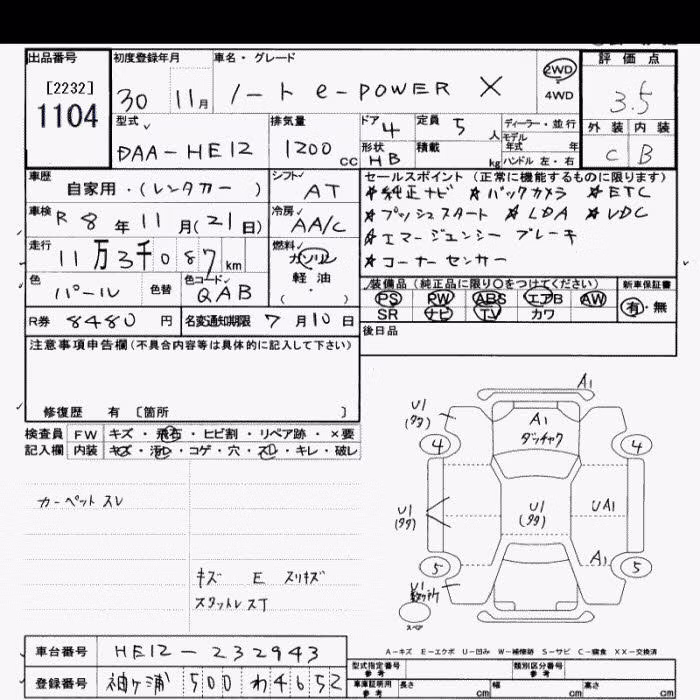 出品番号
[2232]
1104
初度登録年月
30 11月
車名・グレード
ノート e-POWER X
2WD
4WD
評価点
3.5
外装 内装
C B
型式
DAA-HE12
排気量
1200 CC
ドア 4
形状 HB
定員 5 人
積載 kg
ディーラー・並行
モデル
年式 年
ハンドル 左・右
車歴
自家用・(レンタカー)
シフト
AT
車検 R 8 年 11 月(21日)
冷房
AA/C
走行
11万3千087 km
燃料
ガソリン
軽油
(・)
色
パール
色替
色コード
QAB
R券 8480 円
名変通知期限 7 月 10 日
セールスポイント(正常に機能するものに限ります)
★純正ナビ ★バックカメラ ★ETC
★プッシュスタート ★LDA ★VDC
★エマージェンシーブレーキ
★コーナーセンサー
装備品(純正品に限り○をつけてください)
PS PW ABS エアB AW
SR ナビ TV カワ
新車保証書
有・無
後日品
注意事項申告欄(不具合内容等は具体的に記入して下さい)
修復歴 有 [箇所 ]
検査員 FW キズ・飛石・ヒビ割・リペア跡・×要
記入欄 内装 キズ・汚レ・コゲ・穴・スレ・キレ・破レ
カーペットスレ
キズ E スリキズ
スタットレスT
A1
U1
(タタ)
A1
ダッチャク
4
4
U1
(タタ)
U1
(タタ)
UA1
A1
5
5
U1
スペア
A-キズ E-エクボ U-凹み W-補修跡 S-サビ C-腐食 XX-交換済
車台番号 HE12-232943
登録番号 袖ヶ浦 500 わ 4652
型式指定番号
参考
類別区分番号
参考
車庫証明用
参考
長さ cm
幅 cm
高さ cm